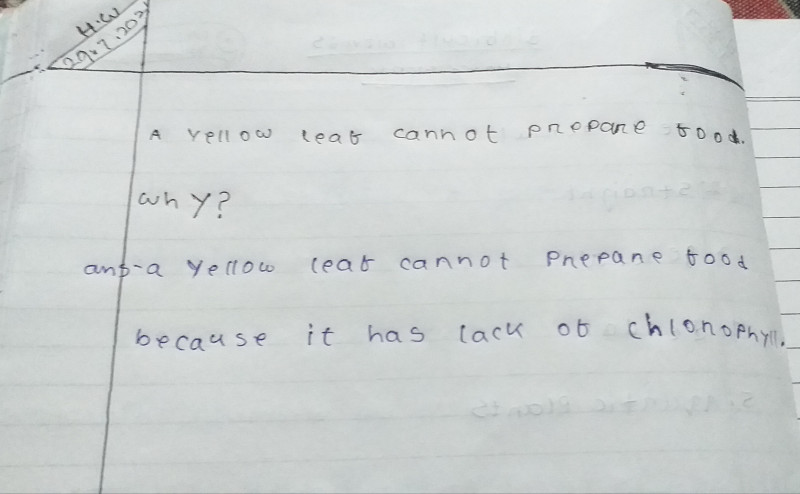 H.W
A yellow leaf cannot prepare food.
why?
ans-a yellow leaf cannot prepare food
because it has lack of chlorophyll.